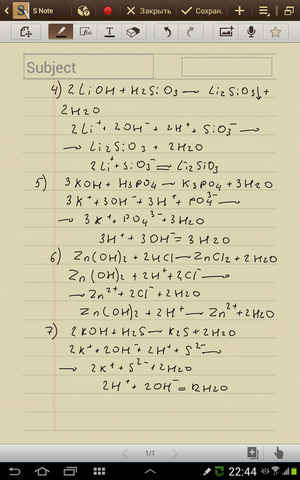 S Note
Закрыть
Сохран.
Subject
4) 2LiOH + H2SiO3 → Li2SiO3↓ +
2H2O
2Li⁺ + 2OH⁻ + 2H⁺ + SiO3⁻ →
→ Li2SiO3 + 2H2O
2Li⁺ + SiO3⁻ = Li2SiO3
5) 3KOH + H3PO4 → K3PO4 + 3H2O
3K⁺ + 3OH⁻ + 3H⁺ + PO4³⁻ →
→ 3K⁺ + PO4³⁻ + 3H2O
3H⁺ + 3OH⁻ = 3H2O
6) Zn(OH)2 + 2HCl → ZnCl2 + 2H2O
Zn(OH)2 + 2H⁺ + 2Cl⁻ →
→ Zn²⁺ + 2Cl⁻ + 2H2O
Zn(OH)2 + 2H⁺ → Zn²⁺ + 2H2O
7) 2KOH + H2S → K2S + 2H2O
2K⁺ + 2OH⁻ + 2H⁺ + S²⁻ →
→ 2K⁺ + S²⁻ + 2H2O
2H⁺ + 2OH⁻ = 2H2O
1/1
22:44